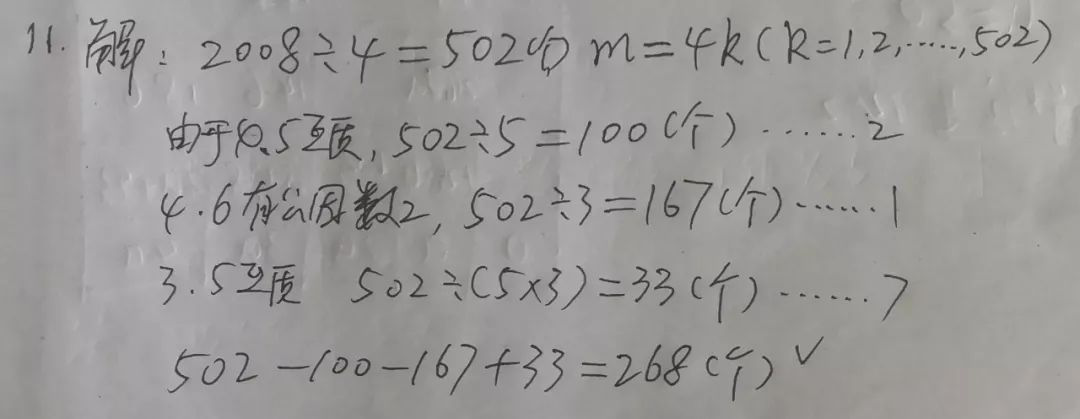 11. 解: 2008÷4=502(个) m=4k(k=1,2,……,502)
由于4.5互质, 502÷5=100(个)……2
4.6有公因数2, 502÷3=167(个)……1
3.5互质 502÷(5×3)=33(个)……7
502-100-167+33=268(个)√